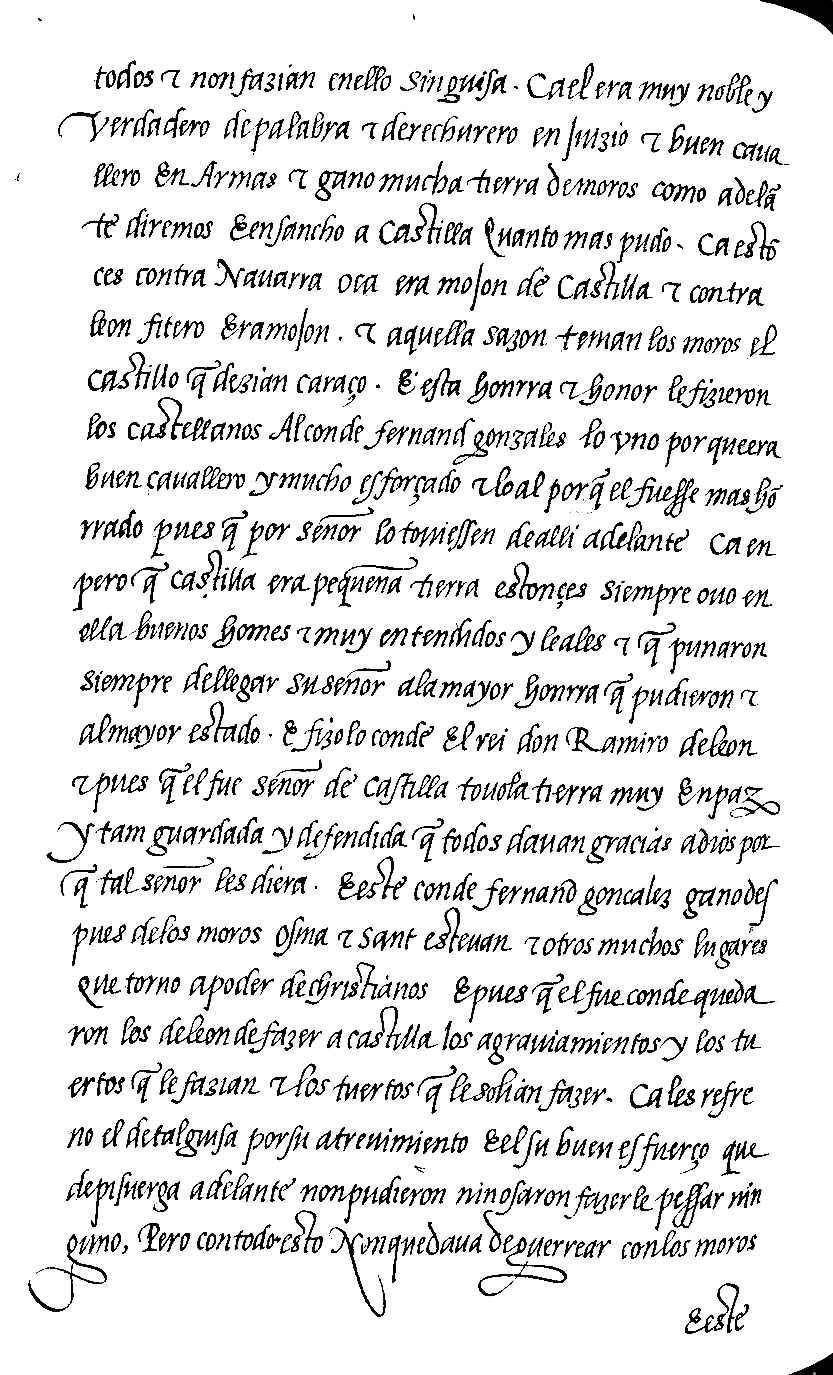 todos ⁊ non fazian en ello sin guisa. Ca el era muy noble y
verdadero de palabra ⁊ derechurero en juizio ⁊ buen cava
llero En Armas ⁊ gano mucha tierra de moros como adelã
te diremos E ensancho a Castilla Quanto mas pudo. Ca estõ
ces contra Navarra oca era mojon de Castilla ⁊ contra
leon fitero Era mojon. ⁊ aquella sazon tenian los moros el
castillo q̃ dezian caraço. E esta honrra ⁊ honor le fizieron
los castellanos Al conde fernand gonzales lo vno por que era
buen cauallero y mucho esforçado ⁊ leal por q̃ el fuesse mas hõ
rrado pues q̃ por señor lo toviessen de alli adelante Ca en
pero q̃ castilla era pequeña tierra estonçes siempre ouo en
ella buenos homes ⁊ muy entendidos y leales ⁊ q̃ punaron
siempre de llegar su señor a la mayor honrra q̃ pudieron ⁊
al mayor estado. E fizolo conde El rei don Ramiro de leon
⁊ pues q̃ el fue señor de castilla touo la tierra muy En paz
y tam guardada y defendida q̃ todos davan gracias a dios por
q̃ tal señor les diera. E este conde fernand goncalez gano des
pues de los moros Osma ⁊ sant estevan ⁊ otros muchos lugares
Que torno a poder de christianos E pues q̃ el fue conde queda
ron los de leon de fazer a castilla los agraviamientos y los tu
ertos q̃ le fazian ⁊ los tuertos q̃ le solian fazer. Ca les refre
no el de tal guisa por su atrevimiento E el su buen esfuerço que
de pisuerga adelante non pudieron nin osaron fazerle pessar nin
guno, Pero con todo esto Non quedava de guerrear con los moros
E este